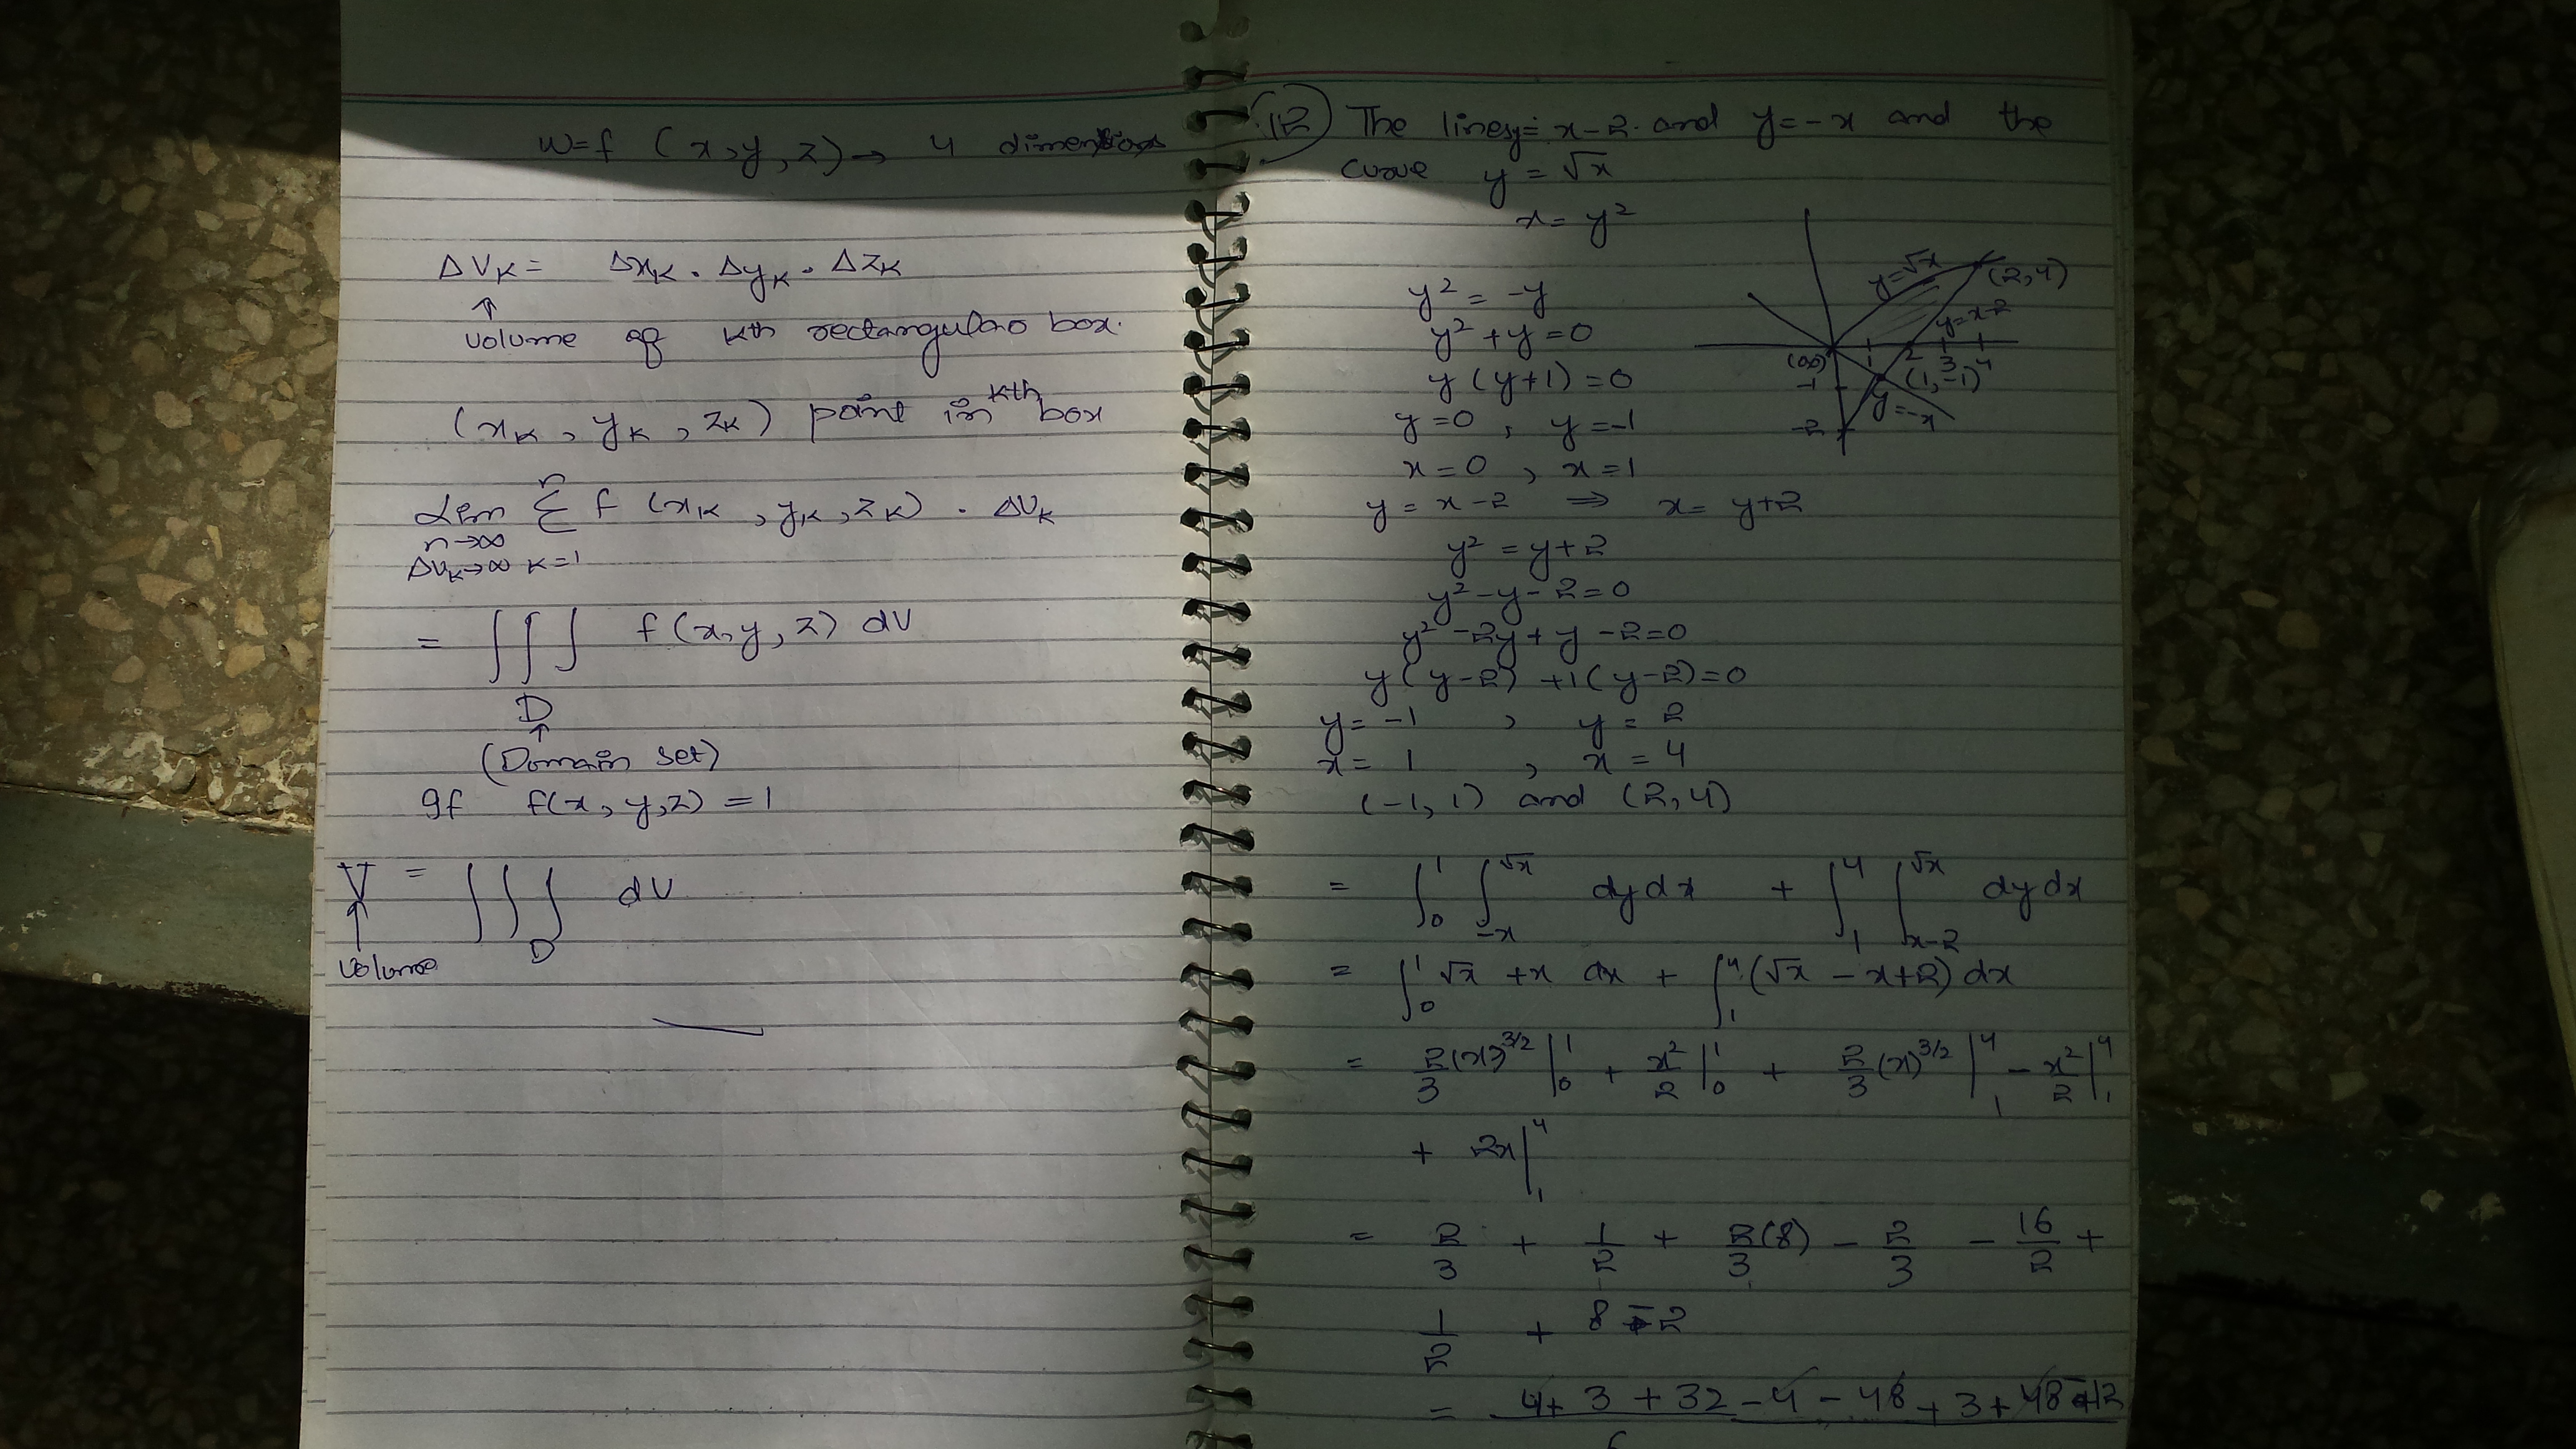 w=f (x,y,z) → 4 dimensions
ΔVk = Δxk . Δyk . Δzk
↑
volume of kth rectangular box.
(xk, yk, zk) point in kth box
Lim Σ f (xk, yk, zk) . ΔVk
n→∞
ΔVk→∞ k=1
n
= ∫∫∫ f(x,y,z) dV
D
↑
(Domain set)
If f(x,y,z) = 1
V = ∫∫∫ dV
D
↑
volume
(12) The lines y= x-2 and y=-x and the
curve y = √x
x = y²
y² = -y
y² + y = 0
y (y+1) = 0
y=0 , y=-1
x=0 , x=1
y = x-2 ⇒ x= y+2
y² = y+2
y² - y - 2 = 0
y² - 2y + y - 2 = 0
y(y-2) +1(y-2) = 0
y= -1 , y= 2
x= 1 , x= 4
(-1, 1) and (2,4)
y=√x
(2,4)
y=x-2
(00) 1 2 3 4
-1 (1,-1)
y=-x
-2
= ∫₀¹ ∫₋ₓ^√x dy dx + ∫₁⁴ ∫ₓ₋₂^√x dy dx
= ∫₀¹ √x + x dx + ∫₁⁴ (√x - x+2) dx
= 2/3 (x)^3/2 |₀¹ + x²/2 |₀¹ + 2/3 (x)^3/2 |₁⁴ - x²/2 |₁⁴
+ 2x |₁⁴
= 2/3 + 1/2 + 2/3 (8) - 2/3 - 16/2 +
1/2 + 8 - 2
= 4+ 3 + 32 - 4 - 48 + 3 + 48 - 12